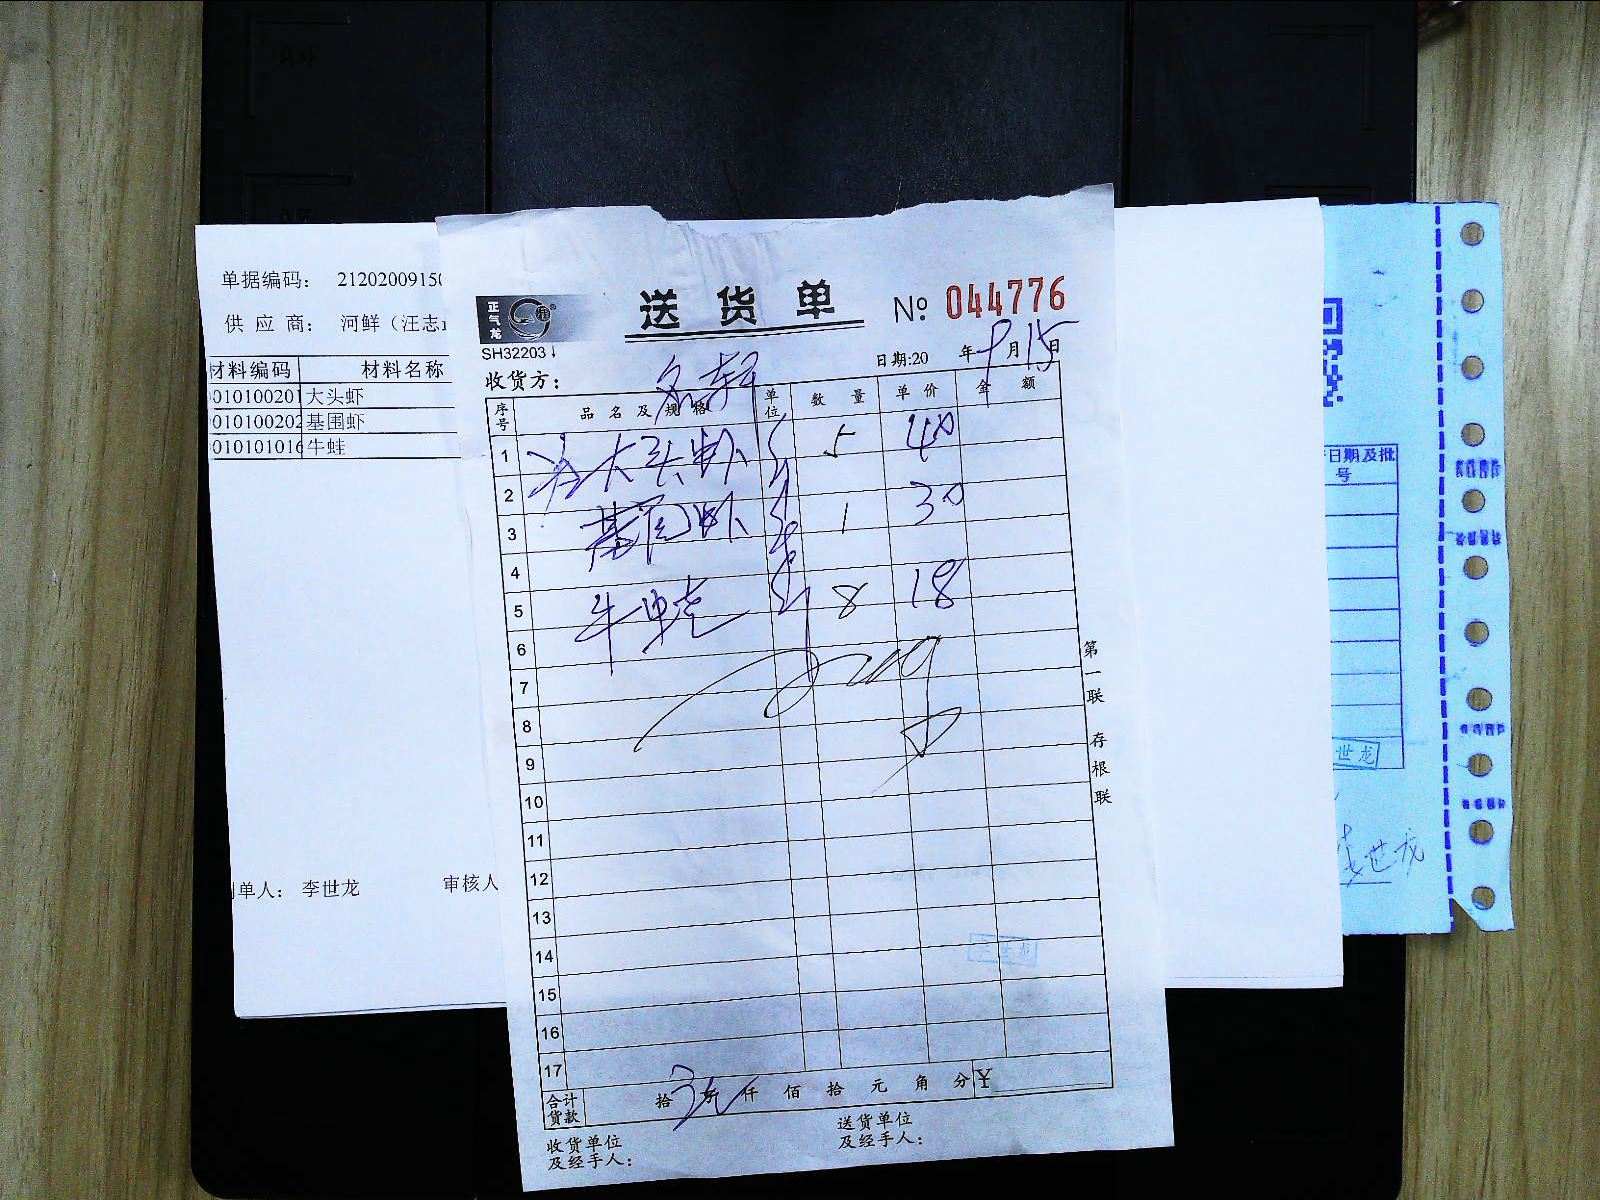 单据编码： 21202009150
供 应 商： 河鲜（汪志
材料编码 材料名称
010100201 大头虾
010100202 基围虾
010101016 牛蛙
制单人： 李世龙 审核人
正气龙
SH32203
送货单 № 044776
日期:20 年 9 月 15 日
收货方： 名轩
序号 品名及规格 单位 数量 单价 金额
1 大头虾 5 40
2
3 基围虾 1 30
4
5 牛蛙 8 18
6
7
8
9
10
11
12
13
14
15
16
17
合计货款 拾 万 仟 佰 拾 元 角 分 ¥
收货单位
及经手人：
送货单位
及经手人：
第一联 存根联
李世龙
日期及批号
世龙
李世龙